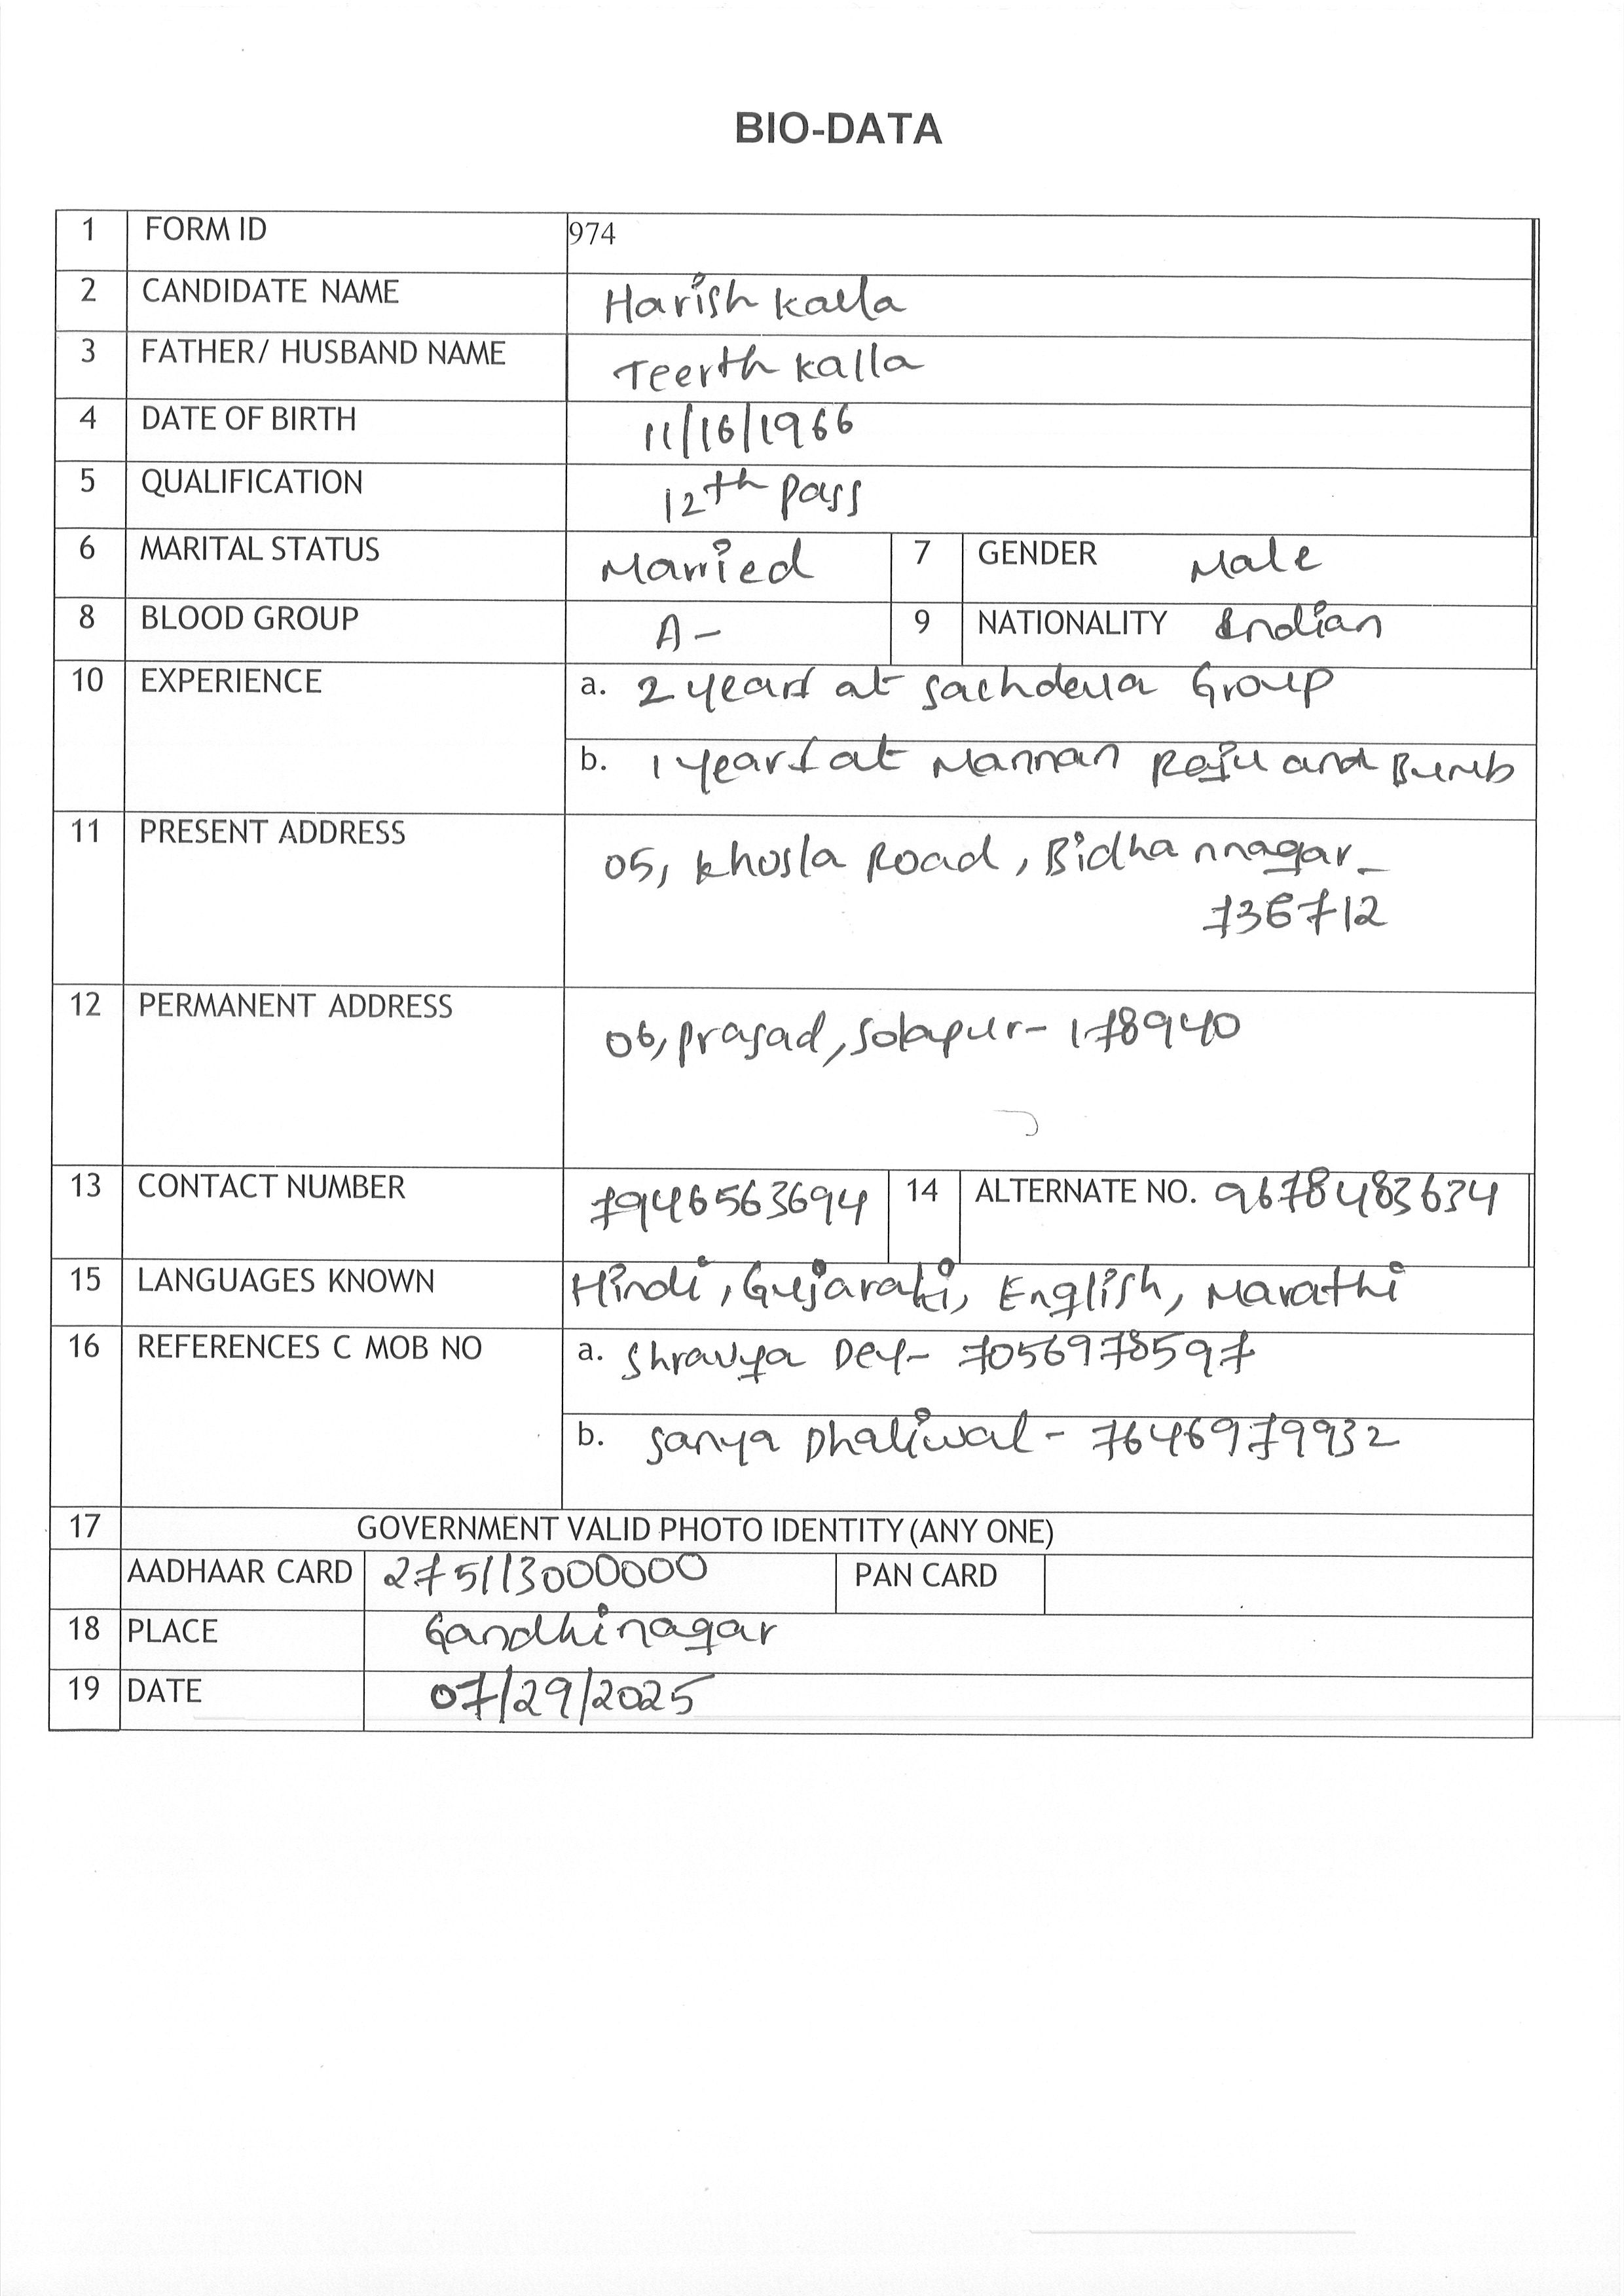 BIO-DATA
1 FORM ID 974
2 CANDIDATE NAME Harish Kalla
3 FATHER/ HUSBAND NAME Teerth Kalla
4 DATE OF BIRTH 11/16/1966
5 QUALIFICATION 12th pass
6 MARITAL STATUS Married 7 GENDER Male
8 BLOOD GROUP A- 9 NATIONALITY Indian
10 EXPERIENCE a. 2 years at Sachdeva Group
b. 1 years at Mannan Raju and Bumb
11 PRESENT ADDRESS 05, Khosla Road, Bidhannagar-
736712
12 PERMANENT ADDRESS 06, Prasad, Solapur- 178940
13 CONTACT NUMBER 7946563694 14 ALTERNATE NO. 9678483634
15 LANGUAGES KNOWN Hindi, Gujarati, English, Marathi
16 REFERENCES C MOB NO a. Shravya Dey- 7056978597
b. Sanya Dhaliwal- 7646979932
17 GOVERNMENT VALID PHOTO IDENTITY (ANY ONE)
AADHAAR CARD 275113000000 PAN CARD
18 PLACE Gandhinagar
19 DATE 07/29/2025